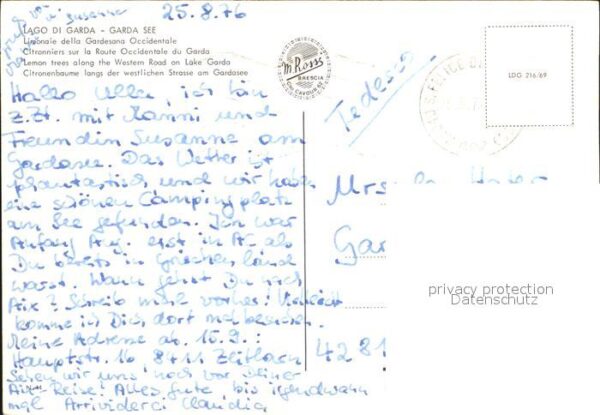 25.8.76
LAGO DI GARDA - GARDA SEE
Limonaie della Gardesana Occidentale
Citronniers sur la Route Occidentale du Garda
Lemon trees along the Western Road on Lake Garda
Citronenbaume langs der westlichen Strasse am Gardasee
M. Ross
BRESCIA
LDG 216/69
Tedesco
Hallo Ulla, ich bin
z.Zt. mit Manni und
Freundin Susanne am
Gardasee. Das Wetter ist
phantastisch und wir haben
eine schönen Campingplatz
am See gefunden. Ich war
Anfang Aug. erst in A. als
Du bereits in Griechenland
warst. Wann gehst Du nach
Aix? Schreib mal vorher! Vielleicht
komme ich Dich dort mal besuchen.
Meine Adresse ab 15.9.:
Hauptstr. 16 8411 Zeitlarn
Sehen wir uns noch vor Deiner
Aix-Reise? Alles Gute, bis irgendwann
mal Arrividerci Claudia
Mrs
Gar
4281
privacy protection
Datenschutz